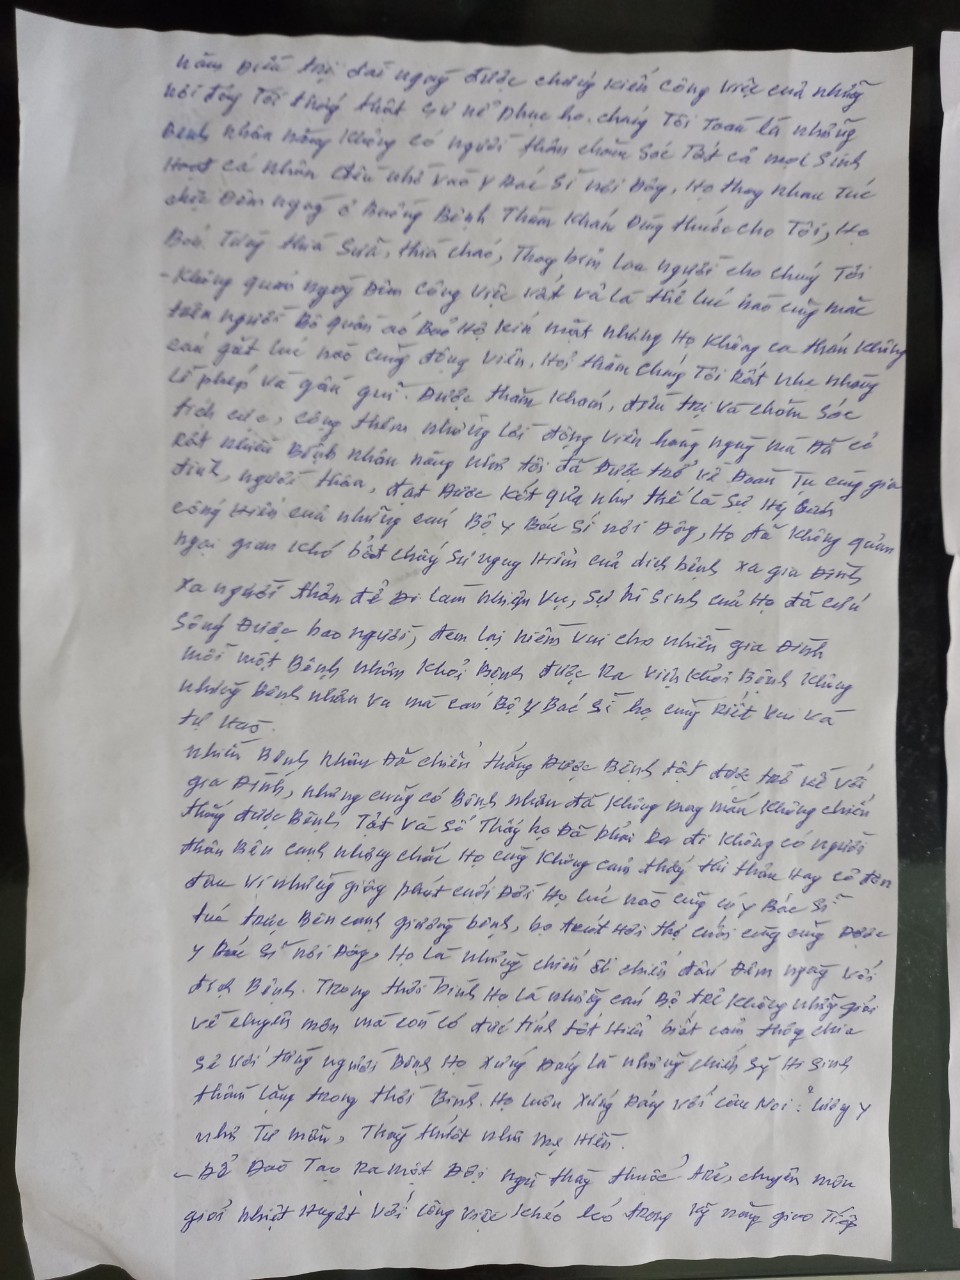 nằm Điều trị dài ngày được chứng kiến công việc của những
nơi đây Tôi thấy thật sự nể phục họ. chúng Tôi Toàn là những
Bệnh nhân nặng không có người thân chăm Sóc Tất cả mọi Sinh
Hoạt cá nhân đều nhờ vào y Bác Sĩ nơi Đây, Họ thay nhau túc
Đêm ngày ở Buồng Bệnh Thăm Khám Dùng thuốc cho Tôi, Họ
Bón Từng thìa Sữa, thìa cháo, Thay bỉm lau người cho chúng Tôi
- Không quản ngày Đêm công việc vất vả là thế lúc nào cũng mặc
trên người Bộ quần áo Bảo Hộ kín mặt nhưng Họ không ca thán không
cáu gắt lúc nào cũng động viên, Hỏi thăm chúng Tôi Rất nhẹ nhàng
Lễ phép và gần gũi. Được thăm khám, điều trị và chăm sóc
tích cực, cộng thêm những lời động viên hàng ngày mà Đã có
Rất nhiều Bệnh nhân nặng như tôi đã Được trở về Đoàn Tụ cùng gia
đình, người thân, đạt Được kết quả như thế là Sự Hy Sinh
cống Hiến của những cán Bộ y Bác Sĩ nơi Đây, Họ đã không quản
ngại gian khó bất chấy sự nguy Hiểm của dịch bệnh xa gia Đình
xa người thân để Đi làm nhiệm vụ, sự hi sinh của Họ đã cứu
Sống Được bao người, đem lại niềm vui cho nhiền gia Đình
mỗi một Bệnh nhân khỏi Bệnh được Ra viện khỏi Bệnh không
những Bệnh nhân vui mà cán Bộ y Bác Sĩ họ cũng Rất vui và
tự Hào.
nhiều Bệnh nhân Đã chiến thắng Được Bệnh tật được trở về với
gia Đình, nhưng cũng có Bệnh nhân đã không may mắn không chiến
thắng được Bệnh Tật và Số Thấy họ Đã phải ra đi không có người
thân Bên cạnh nhưng chắc Họ cũng không cảm thấy Hay cô đơn
đâu vì những giây phút cuối Đời Họ lúc nào cũng có y Bác Sĩ
túc trực Bên cạnh giường bệnh, họ trút Hơi thở cuối cùng cũng Được
y Bác Sĩ nơi Đây, Họ là những chiến sĩ chiến đấu Đêm ngày với
dịch Bệnh. Trong thời bình Họ là những cán Bộ trẻ không những giỏi
về chuyên môn mà còn có đức tính tốt Hiểu biết cảm thông chia
sẻ với từng người Bệnh Họ xứng Đáng là những chiến sỹ Hi Sinh
thầm lặng trong thời Bình. Họ luôn xứng Đáng với câu Nói: "Lương y
như Từ mẫu, Thầy thuốc như mẹ Hiền.
- Để Đào Tạo Ra một Đội ngũ thầy thuốc trẻ, chuyên môn
giỏi nhiệt Huyết với công việc khéo léo trong kỹ năng giao Tiếp